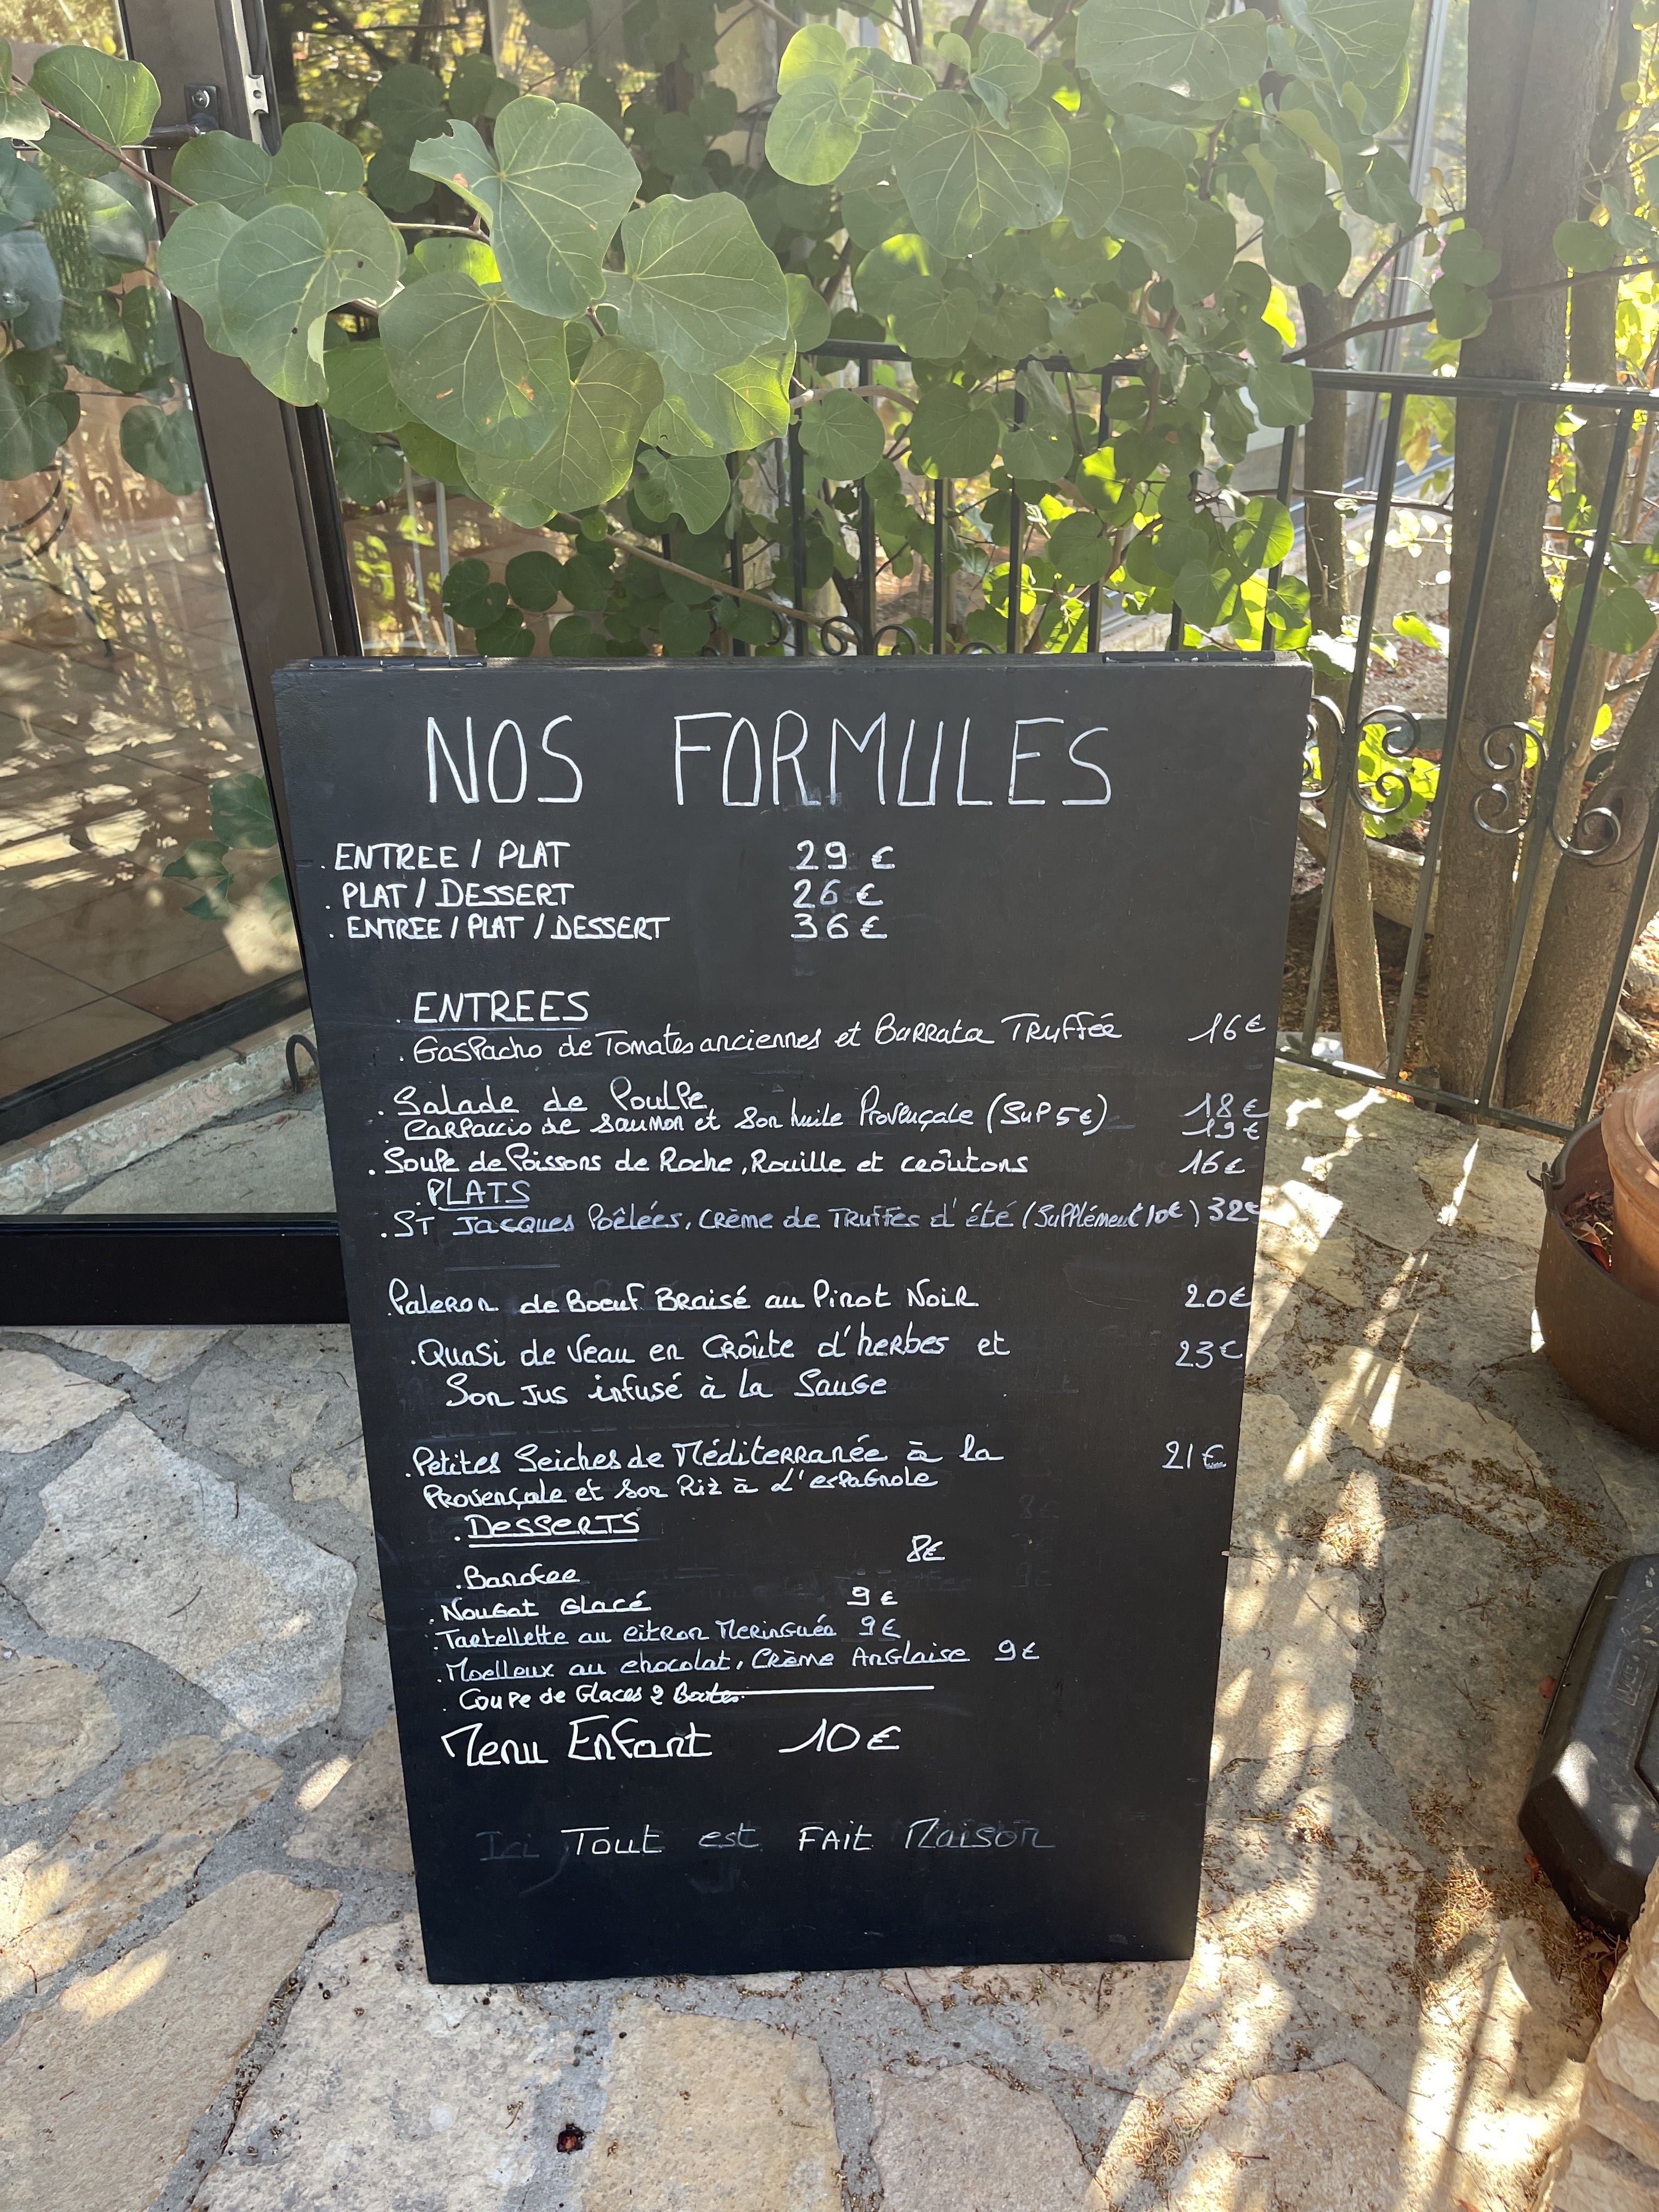 NOS FORMULES
. ENTREE / PLAT 29 €
. PLAT / DESSERT 26 €
. ENTREE / PLAT / DESSERT 36 €
. ENTREES
. Gaspacho de Tomates anciennes et Burrata Truffée 16€
. Salade de Poulpe 18€
. Carpaccio de Saumon et Son huile Provençale (Sup 5€) 19€
. Soupe de Poissons de Roche, Rouille et croûtons 16€
. PLATS
. ST Jacques Poêlées, Crème de Truffes d'été (Supplément 10€) 32€
. Paleron de Boeuf Braisé au Pinot Noir 20€
. Quasi de Veau en Croûte d'herbes et 23€
Son Jus infusé à la Sauge
. Petites Seiches de Méditerranée à la 21€
Provençale et Son Riz à l'espagnole
. Desserts
8€
. Banofee
. Nougat Glacé 9€
. Tartellette au citron Meringuée 9€
. Moelleux au chocolat, Crème Anglaise 9€
. Coupe de Glaces 2 Boules
Menu Enfant 10€
Ici Tout est FAit Maison